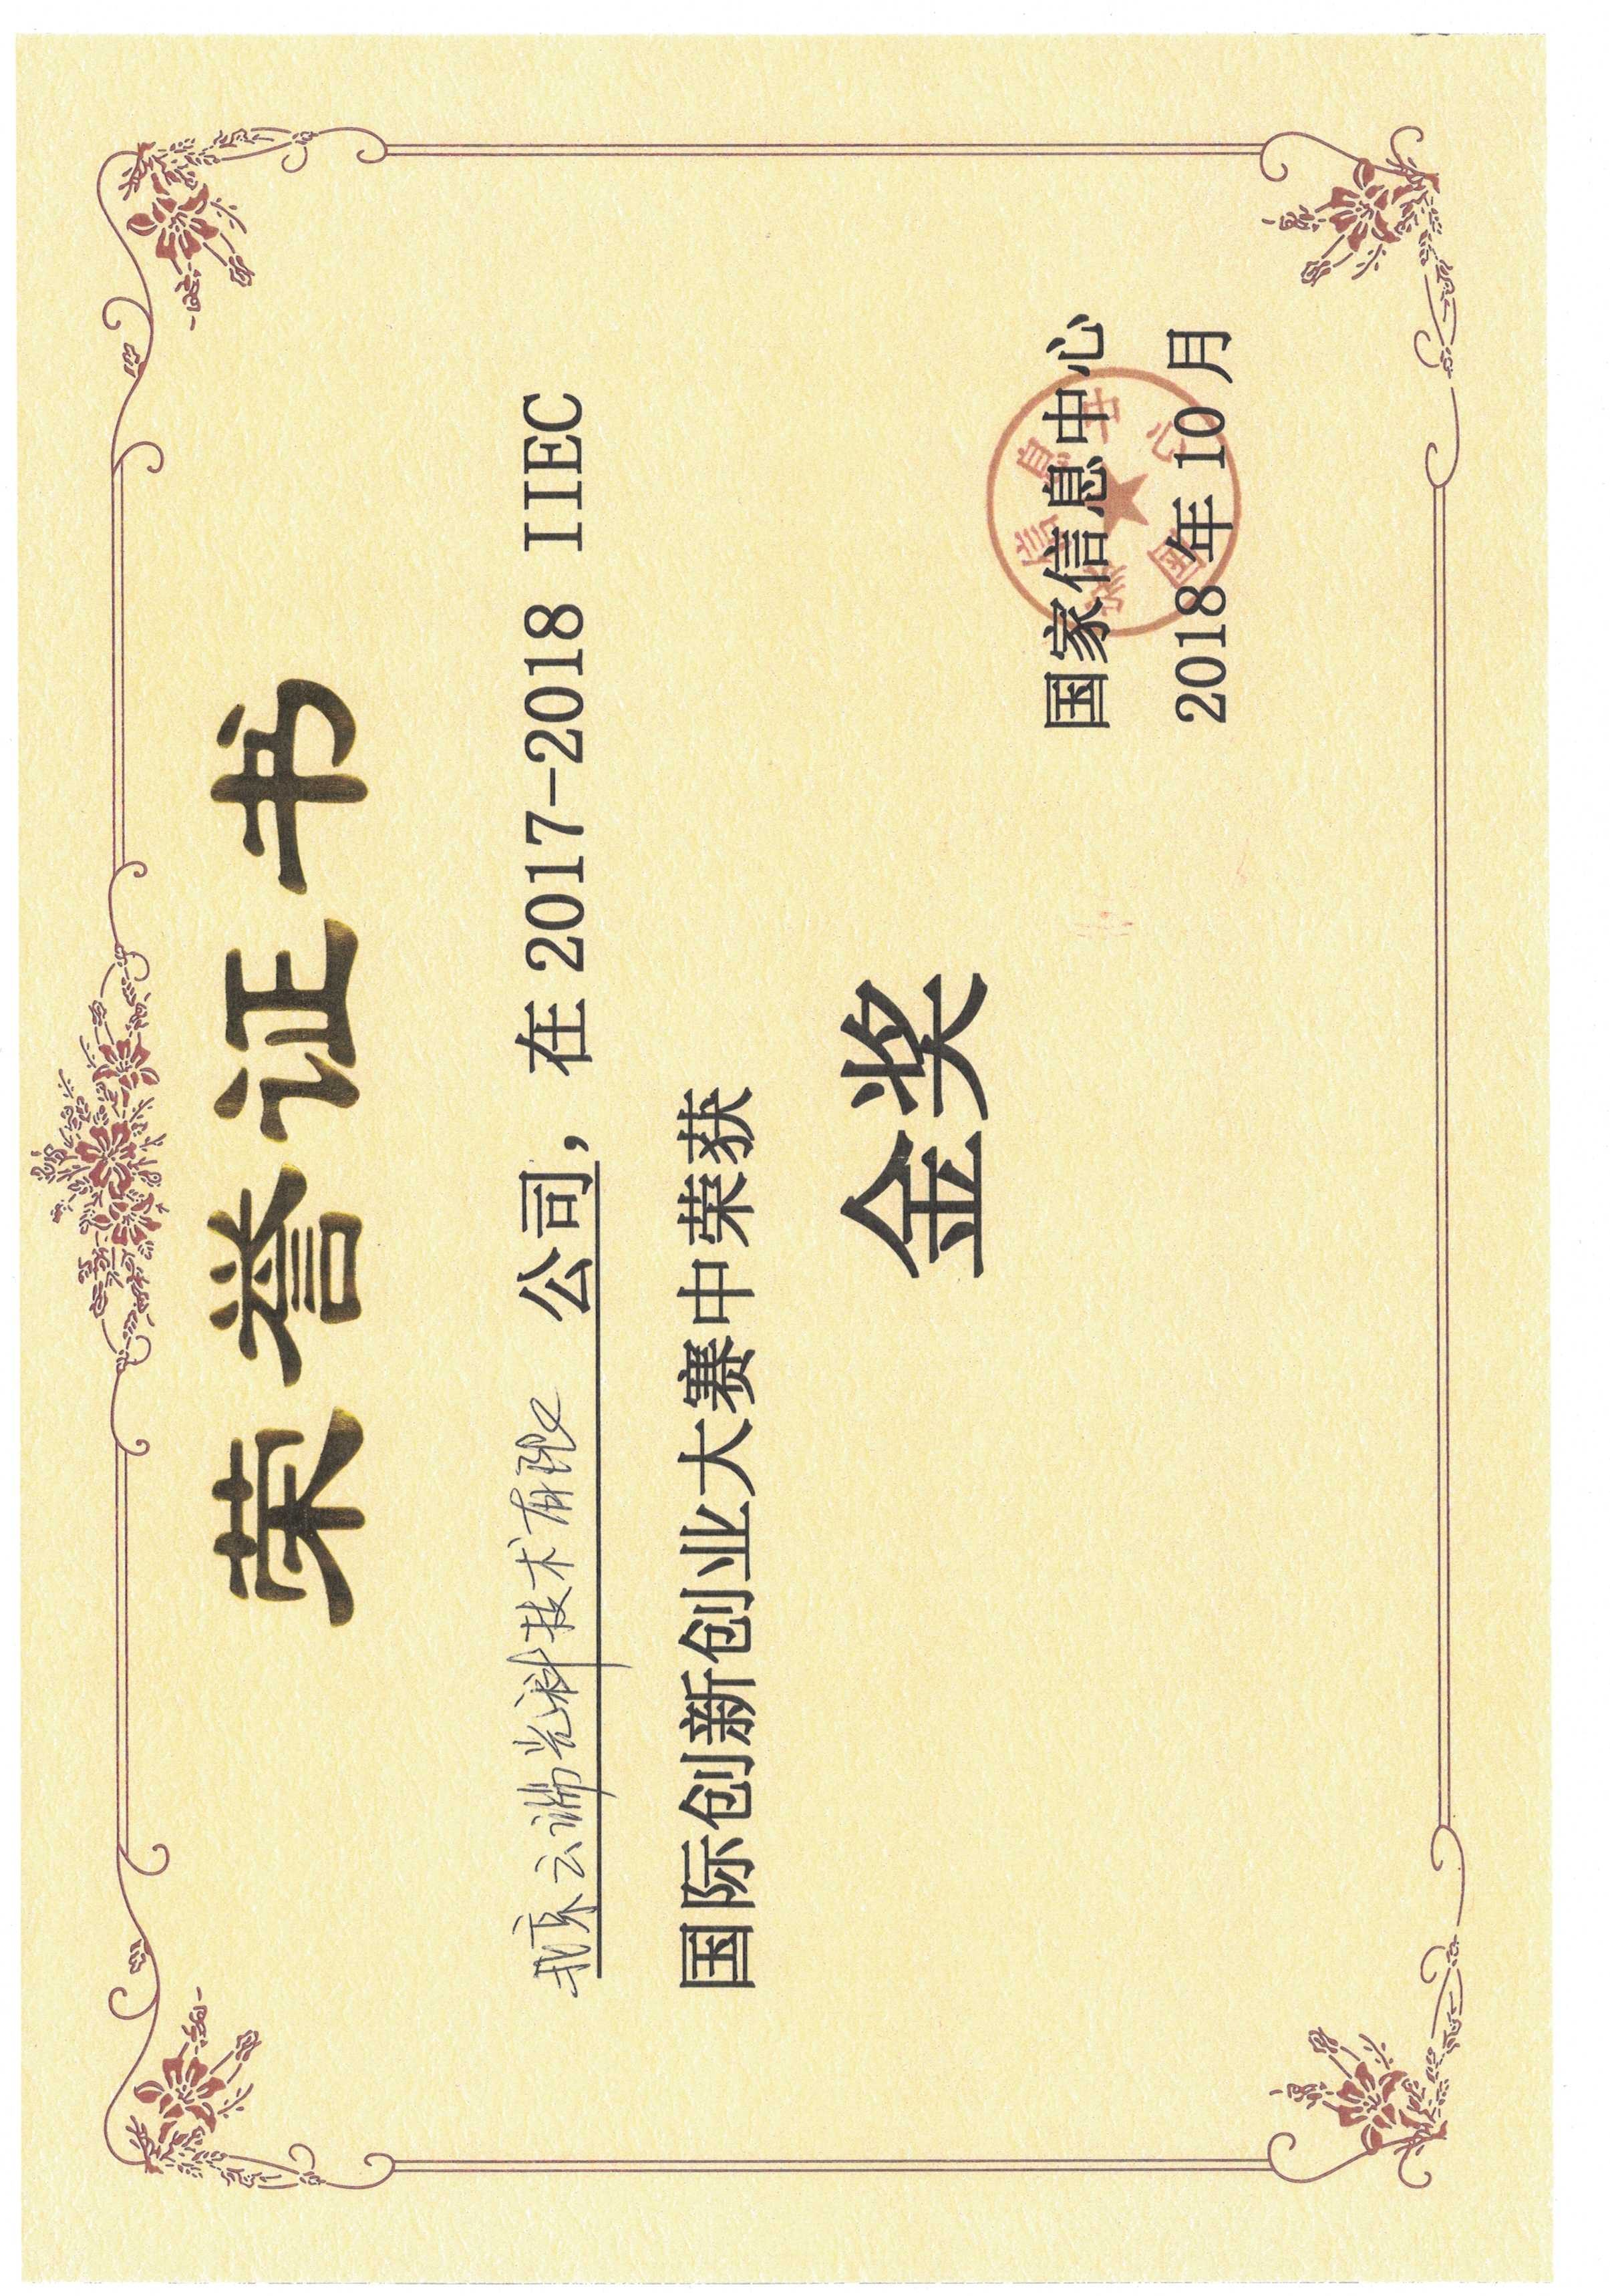 荣誉证书
北京云端光科技术有限 公司，在 2017-2018 IIEC
国际创新创业大赛中荣获
金奖
国家信息中心
2018 年 10 月
国家信息中心